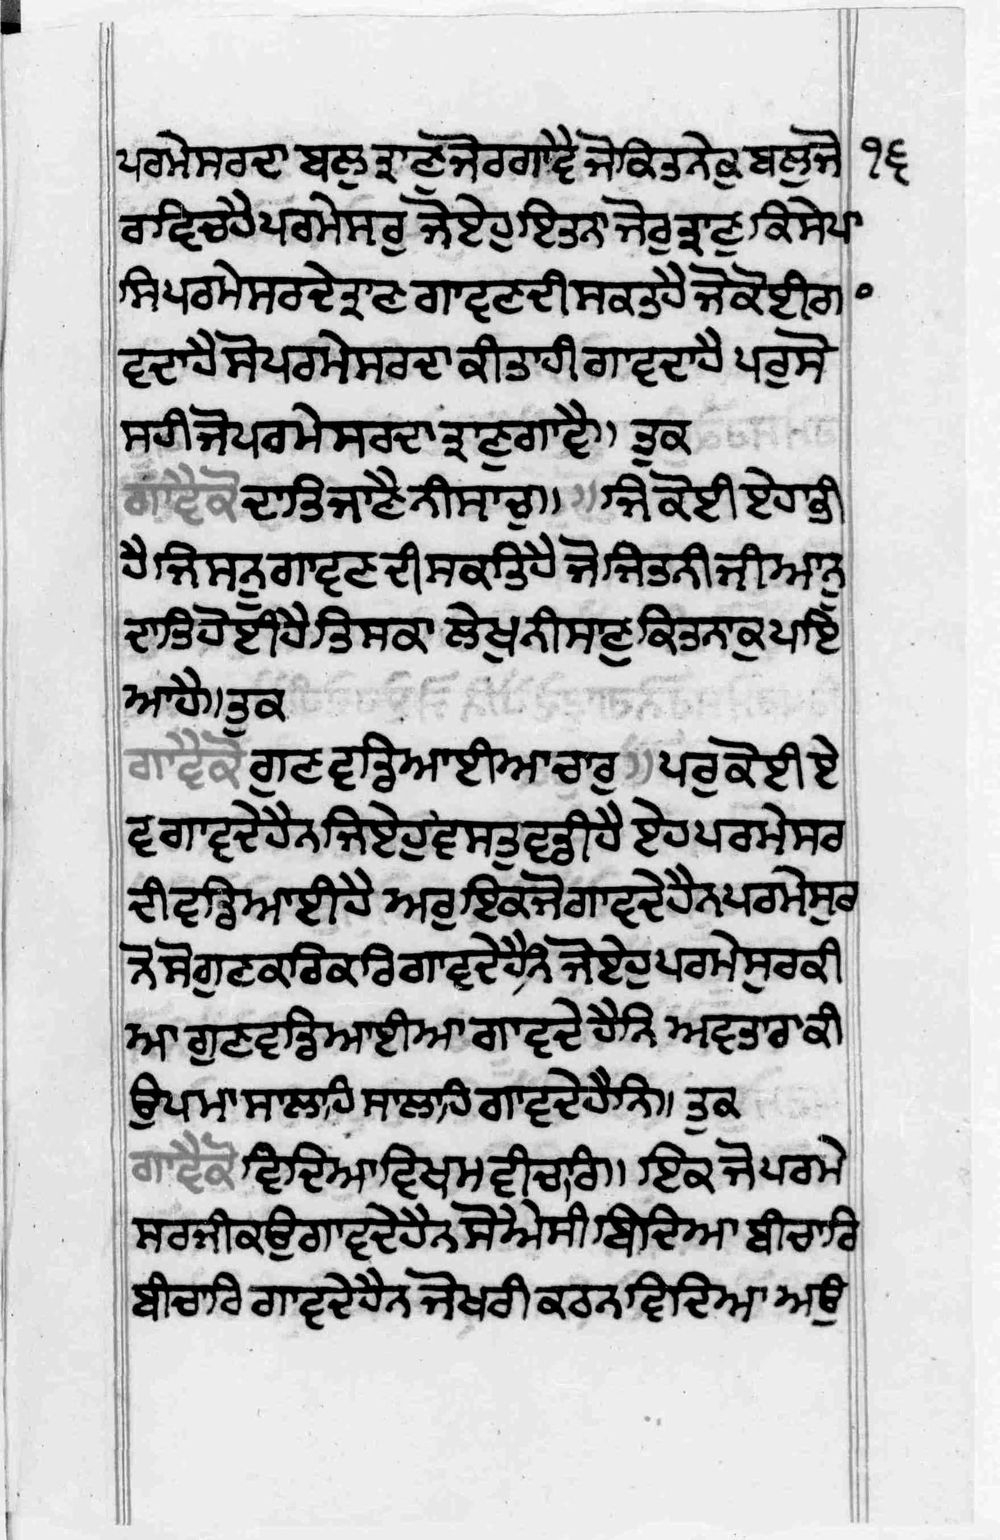 ਪਰਮੇਸਰਦਾ ਬਲੁ ਤਾਣੁ ਜੋਰ ਗਾਵੈ ਜੋ ਕਿਤਨੇਕੁ ਬਲੁ ਜੋ ੧੬
ਰ ਵਿਚ ਹੈ ਪਰਮੇਸਰੁ ਜੋ ਏਹੁ ਇਤਨਾ ਜੋਰੁ ਤਾਣੁ ਕਿਸੇ ਪਾ
ਸਿ ਪਰਮੇਸਰ ਦੇ ਤਾਣ ਗਾਵਣ ਦੀ ਸਕਤ ਹੈ ਜੋ ਕੋਈ ਗਾ
ਵਦਾ ਹੈ ਸੋ ਪਰਮੇਸਰ ਦਾ ਕੀਤਾ ਹੀ ਗਾਵਦਾ ਹੈ ਪਰੁ ਸੋ
ਸਹੀ ਜੋ ਪਰਮੇਸਰ ਦਾ ਤਾਣੁ ਗਾਵੈ॥ ਤੁਕ
ਗਾਵੈ ਕੋ ਦਾਤਿ ਜਾਣੈ ਨੀਸਾਣੁ॥ ॥ ਜਿ ਕੋਈ ਏਹਾ ਭੀ
ਹੈ ਜਿਸਨੂ ਗਾਵਣ ਦੀ ਸਕਤਿ ਹੈ ਜੋ ਜਿਤਨੀ ਜੀਆ ਨੂ
ਦਾਤਿ ਹੋਈ ਹੈ ਤਿਸਕਾ ਲੇਖੁ ਨੀਸਾਣੁ ਕਿਤਨਾਕੁ ਪਾਇ
ਆ ਹੈ॥ ਤੁਕ
ਗਾਵੈ ਕੋ ਗੁਣ ਵਡਿਆਈਆ ਚਾਰੁ॥ ਪਰੁ ਕੋਈ ਏ
ਵ ਗਾਵਦੇ ਹੈਨ ਜਿ ਏਹੁ ਵਸਤੁ ਵਡੀ ਹੈ ਏਹ ਪਰਮੇਸਰ
ਦੀ ਵਡਿਆਈ ਹੈ ਅਰੁ ਇਕ ਜੋ ਗਾਵਦੇ ਹੈਨ ਪਰਮੇਸੁਰ
ਨੋ ਸੋ ਗੁਣ ਕਰਿ ਕਰਿ ਗਾਵਦੇ ਹੈਨਿ ਜੋ ਏਹੁ ਪਰਮੇਸੁਰ ਕੀ
ਆ ਗੁਣ ਵਡਿਆਈਆ ਗਾਵਦੇ ਹੈਨਿ ਅਵਤਾਰਾ ਕੀ
ਉਪਮਾ ਸਾਲਾਹਿ ਸਾਲਾਹਿ ਗਾਵਦੇ ਹੈਨਿ॥ ਤੁਕ
ਗਾਵੈ ਕੋ ਵਿਦਿਆ ਵਿਖਮ ਵੀਚਾਰਿ॥ ਇਕ ਜੋ ਪਰਮੇ
ਸਰ ਜੀ ਕਉ ਗਾਵਦੇ ਹੈਨ ਸੋ ਐਸੀ ਬਿਦਿਆ ਬੀਚਾਰਿ
ਬੀਚਾਰਿ ਗਾਵਦੇ ਹੈਨ ਜੋ ਖਰੀ ਕਠਨ ਵਿਦਿਆ ਅਉ